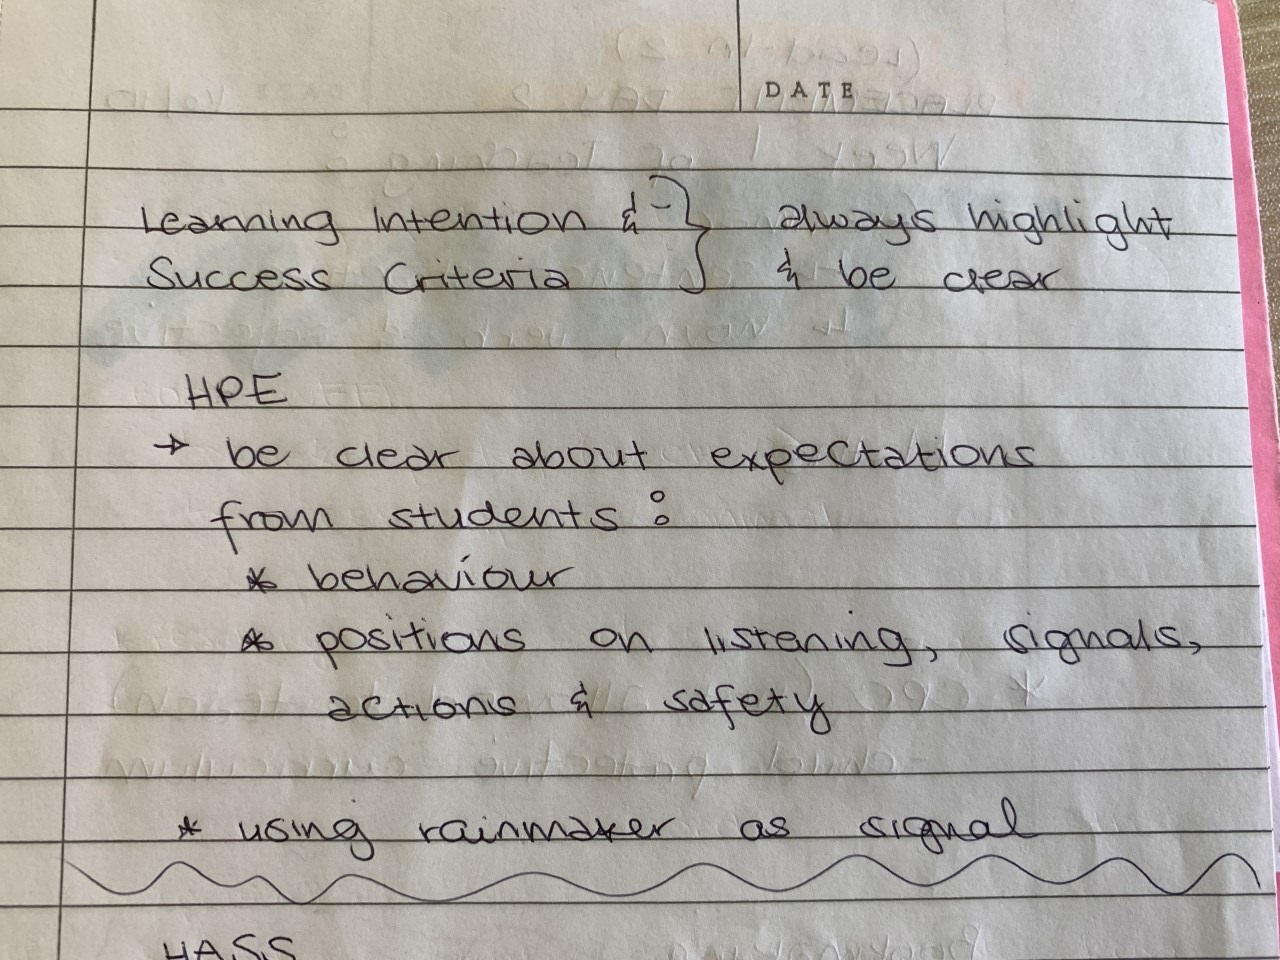 DATE
Learning Intention & } always highlight
Success Criteria & be clear
HPE
→ be clear about expectations
from students :
* behaviour
* positions on listening, signals,
actions & safety
* using rainmaker as signal
HASS